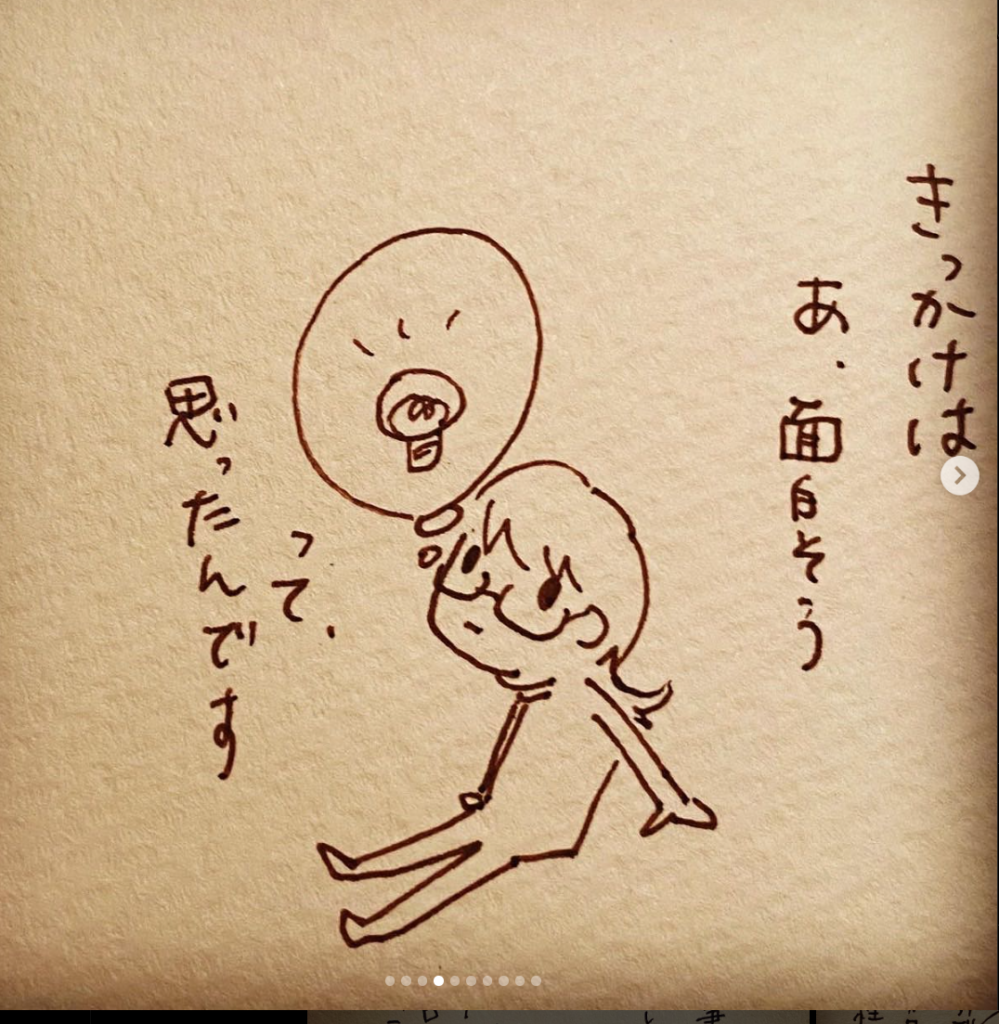 きっかけは
あ、面白そう
って、
思ったんです